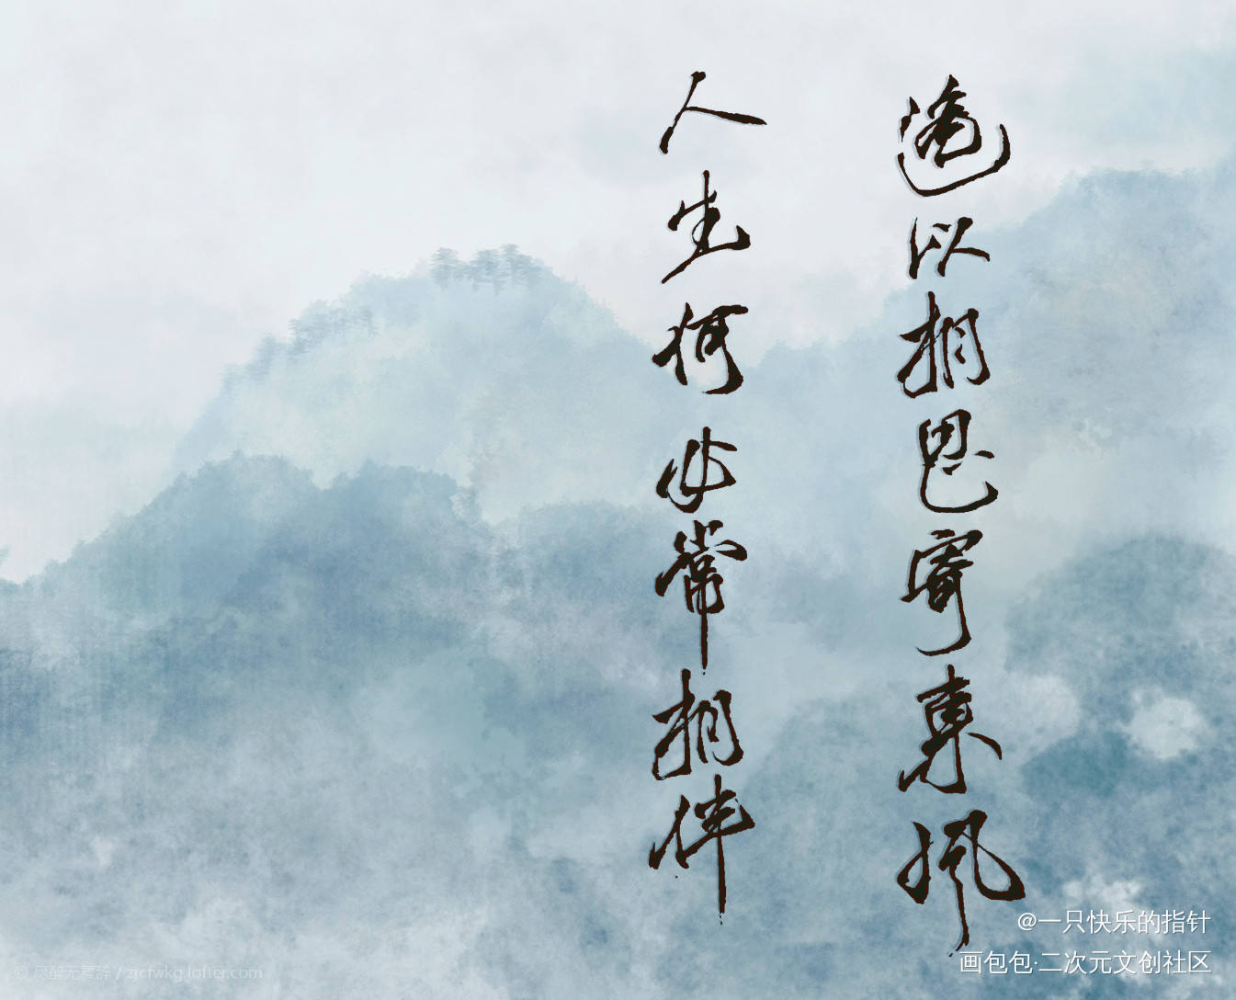 遥以相思寄东风
人生何必常相伴
@一只快乐的指针
画包包·二次元文创社区